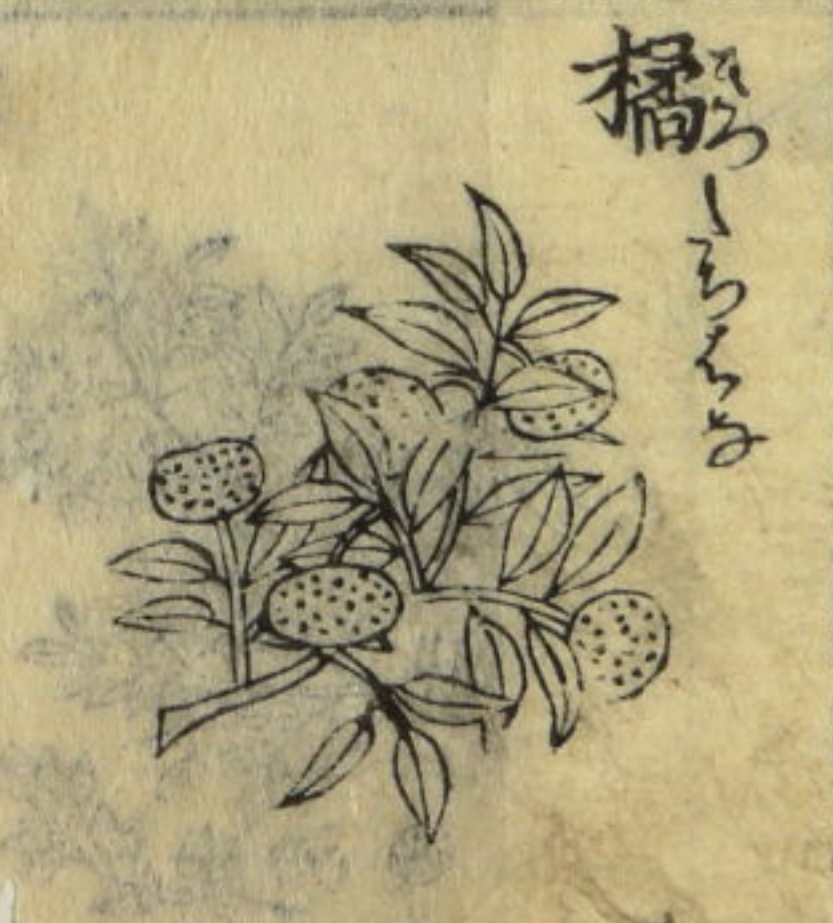 橘
きつ
たちはな